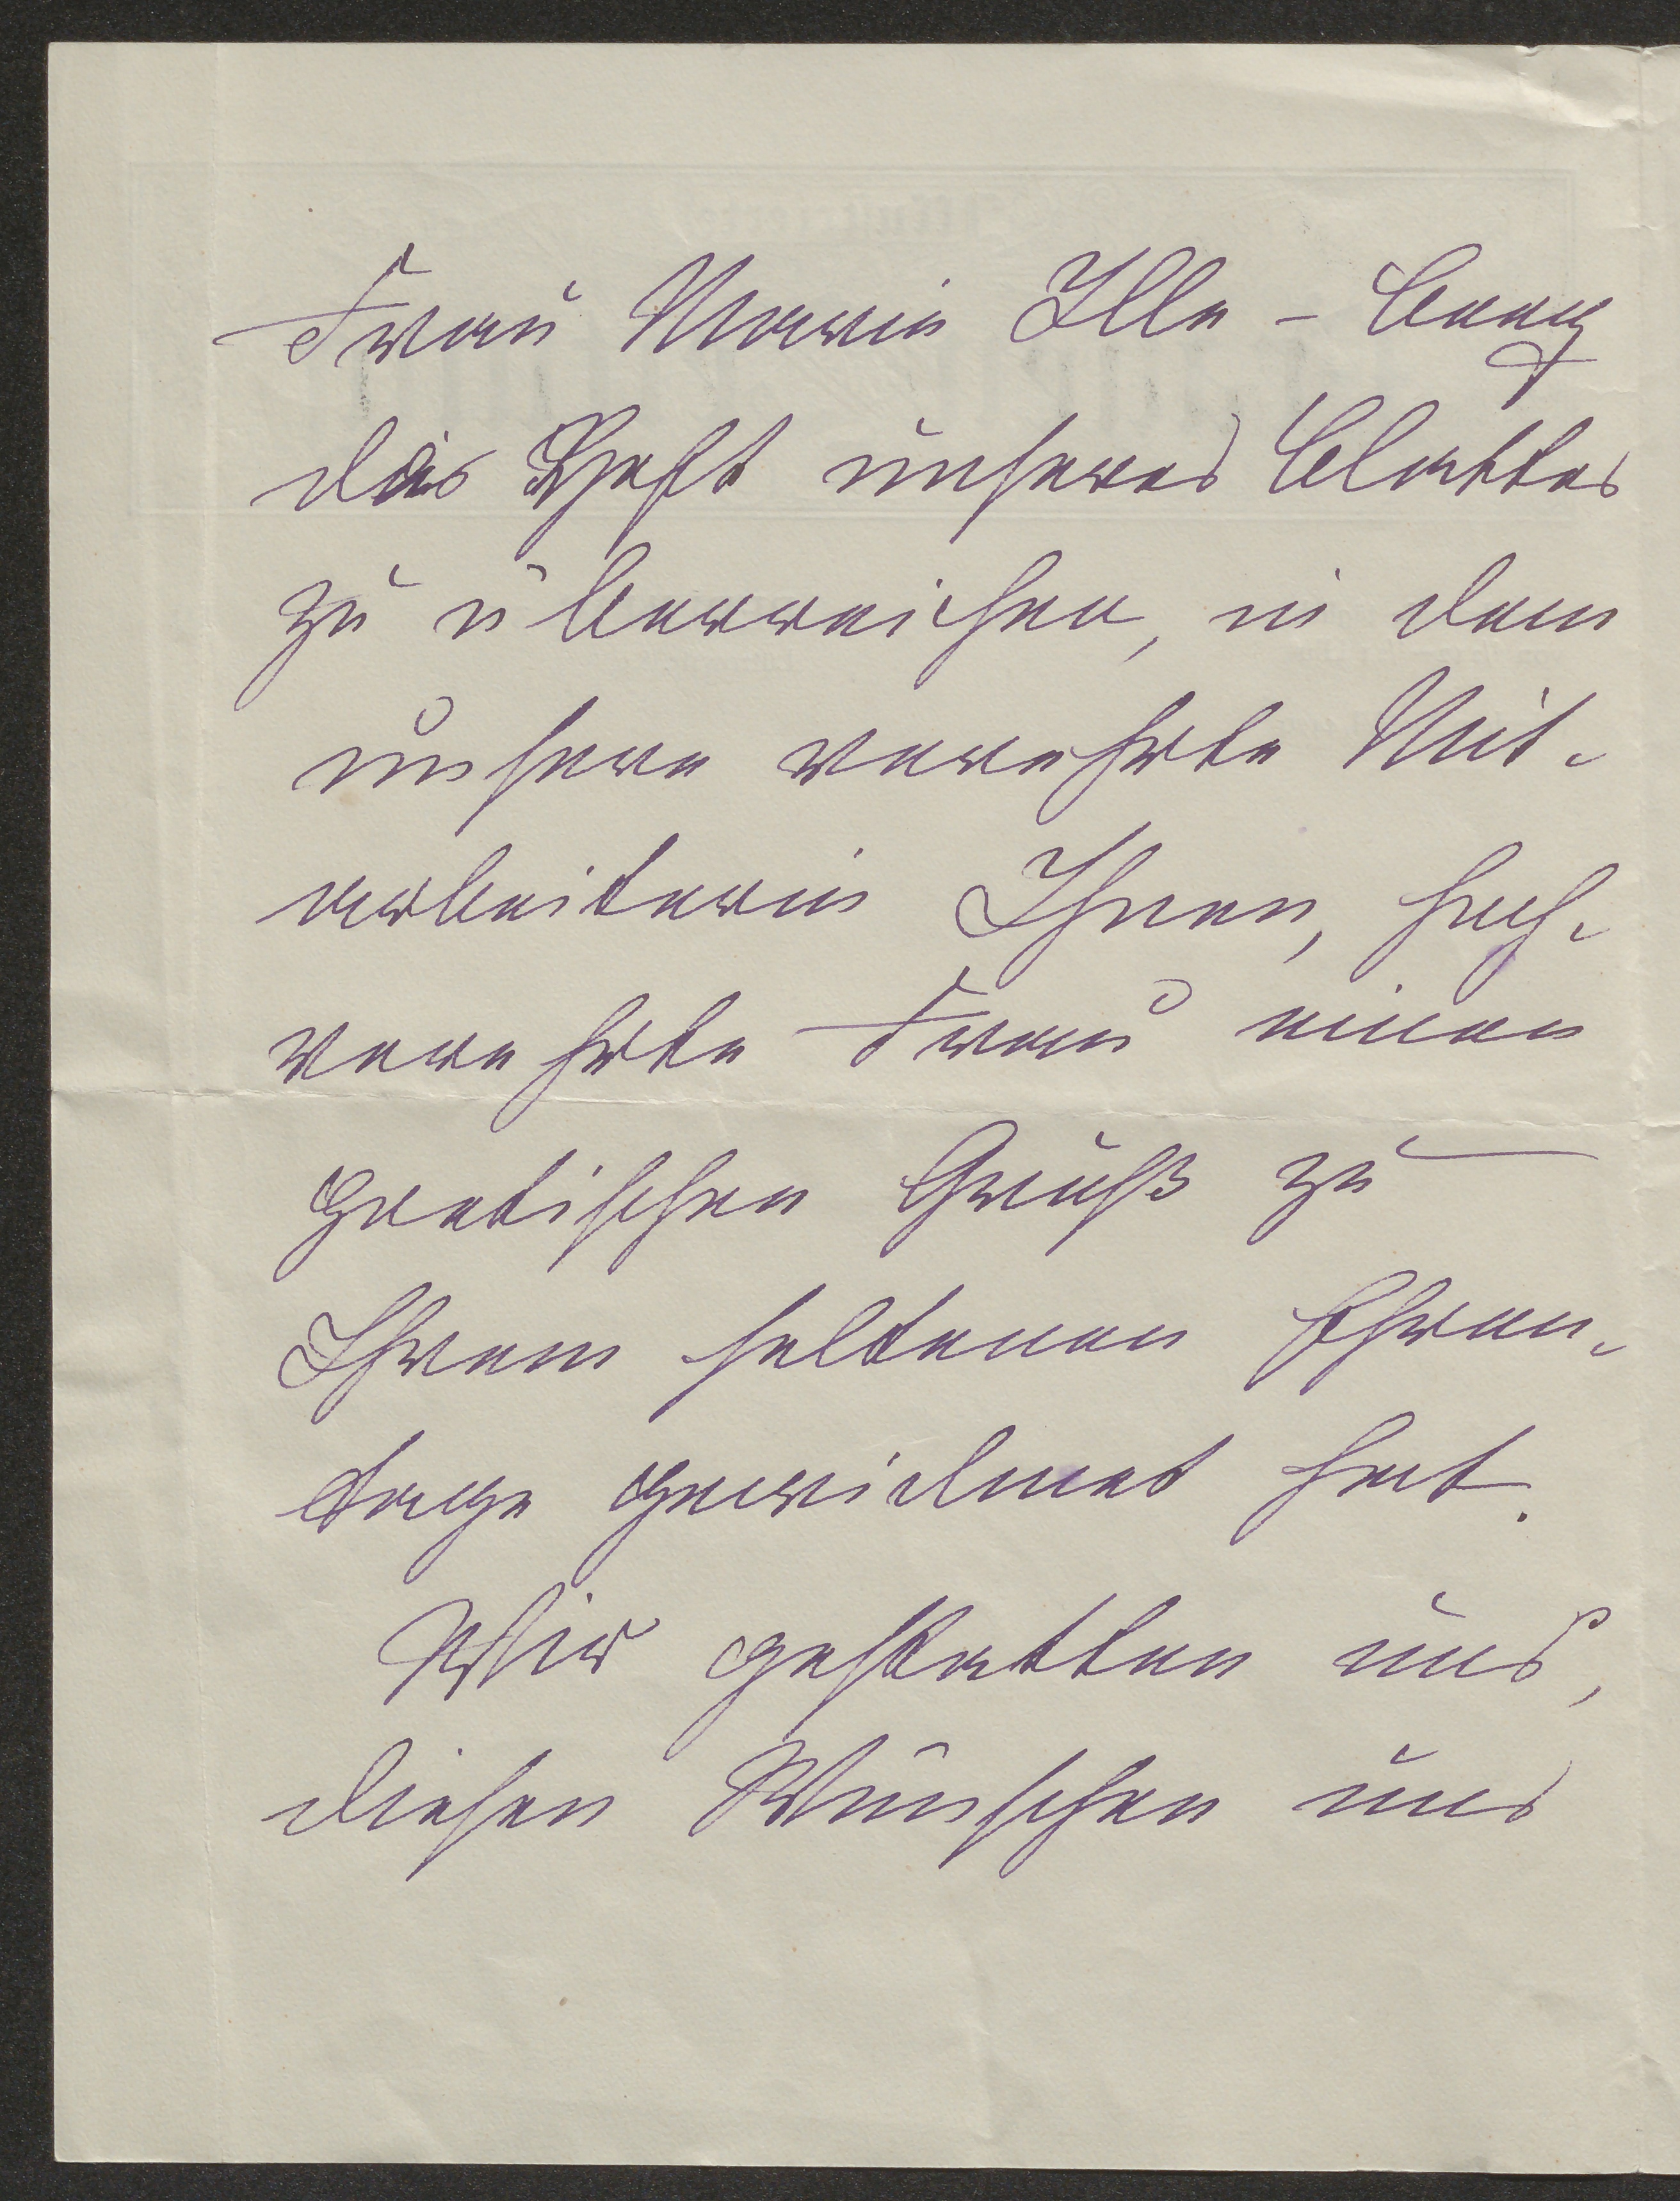 Frau Marie Ille-Beeg
das Heft unseres Blattes
zu überreichen, in dem
unsere verehrte Mit-
arbeiterin Ihnen, hoch-
verehrte Frau einen
poetischen Gruß zu
Ihrem seltenen Ehren-
tage gewidmet hat.
Wir gestatten uns,
diesen Wünschen uns